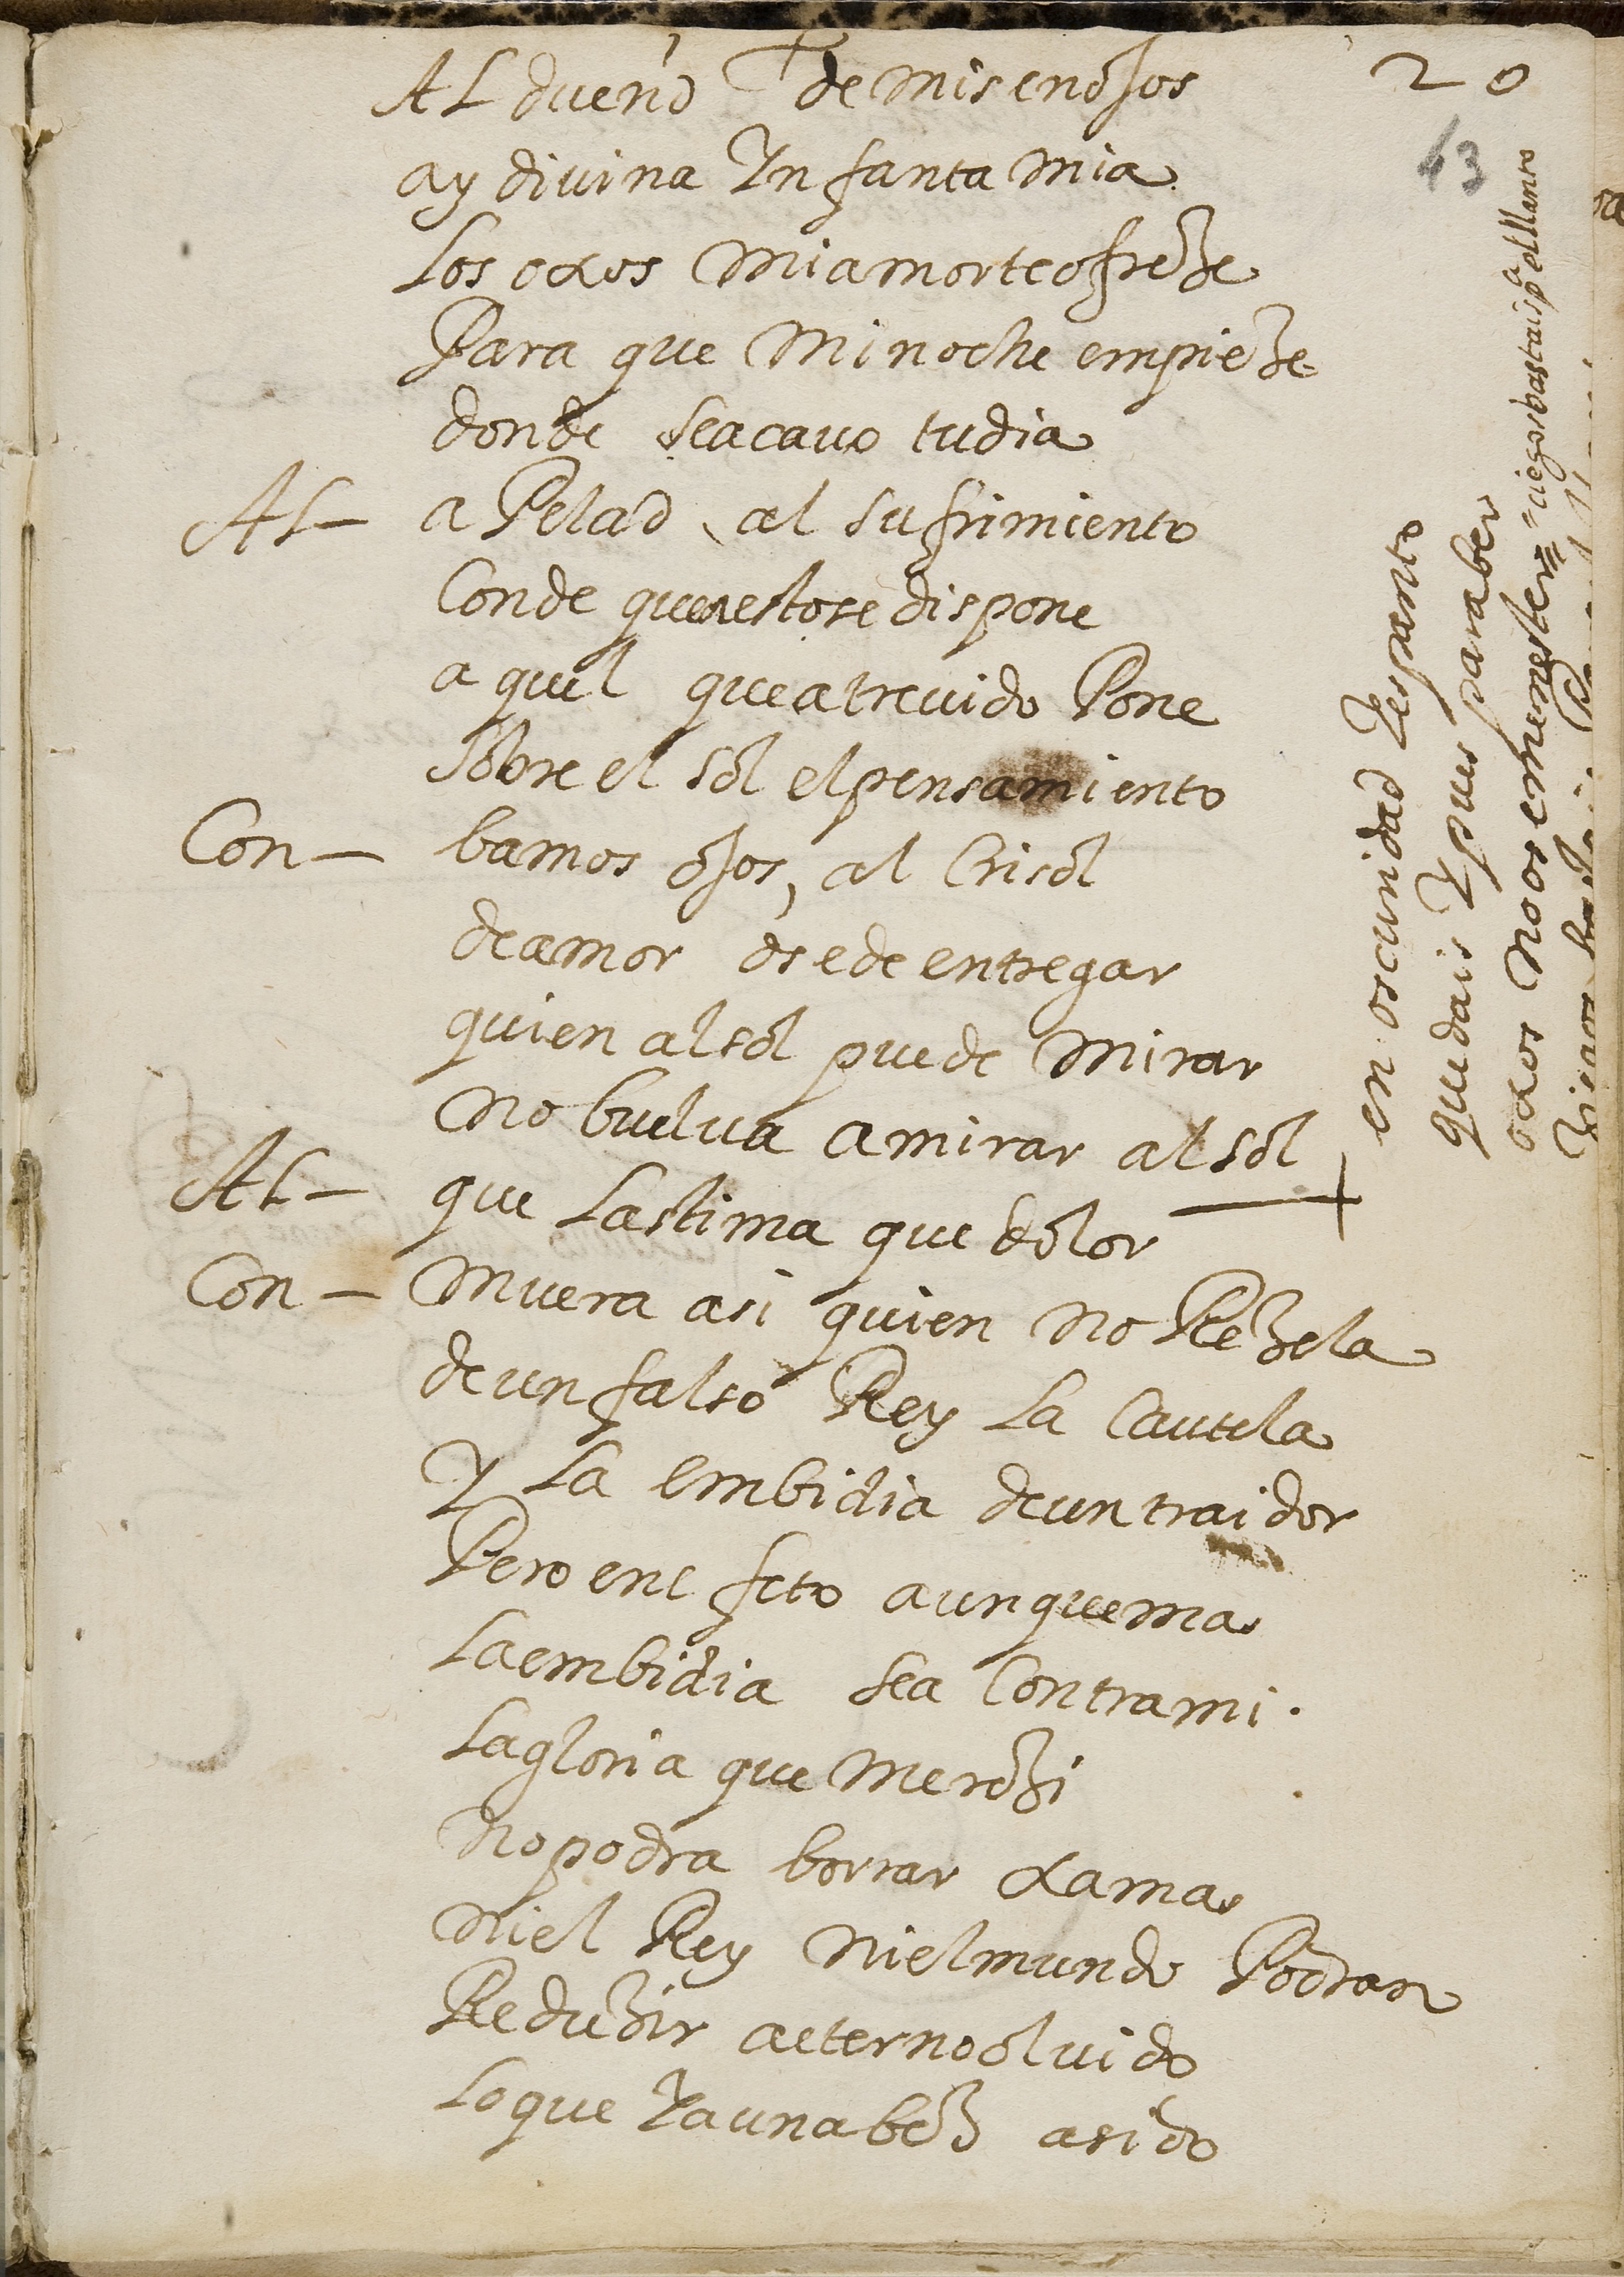 AL dueño de mis enojos
20
43
ay divina Ynfanta mia
Los oxos mi amor te ofreze
Para que mi noche empieze
donde se acauo tu dia
AL— a Pelad, al sufrimiento
Conde que a esto se dispone
a quel que atreuido Pone
sobre el sol el pensamiento
Con— bamos ojos, al Crisol
de amor os e de entregar
quien al sol puede mirar
no buelua a mirar al sol
AL— que Lastima que dolor
Con— muera asi quien no Rezela
de un falso Rey La Cautela
Y La embidia de un traidor
Pero en efeto aunque mas
La embidia sea Contra mi.
La gloria que merezi
no podra borrar xamas
ni el Rey ni el mundo Podran
Reduzir a eterno oluido
Lo que Ya una bez a sido
en oscuridad Yespanto
quedais Y pues para ber
oxos no os e menester
ziegos bastais pa el llanto